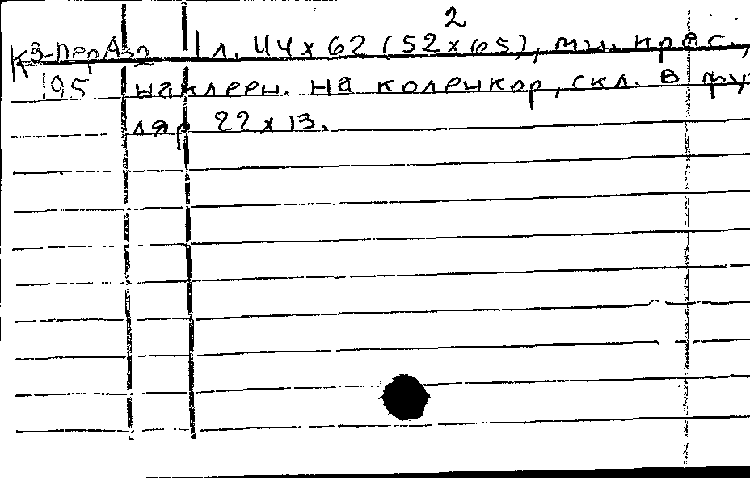 2
К3-Пер Аз2 1 л. 44х62 (52х65), мн. крас.,
195 наклеен. на коленкор, скл. в фу
ляр 22х13.